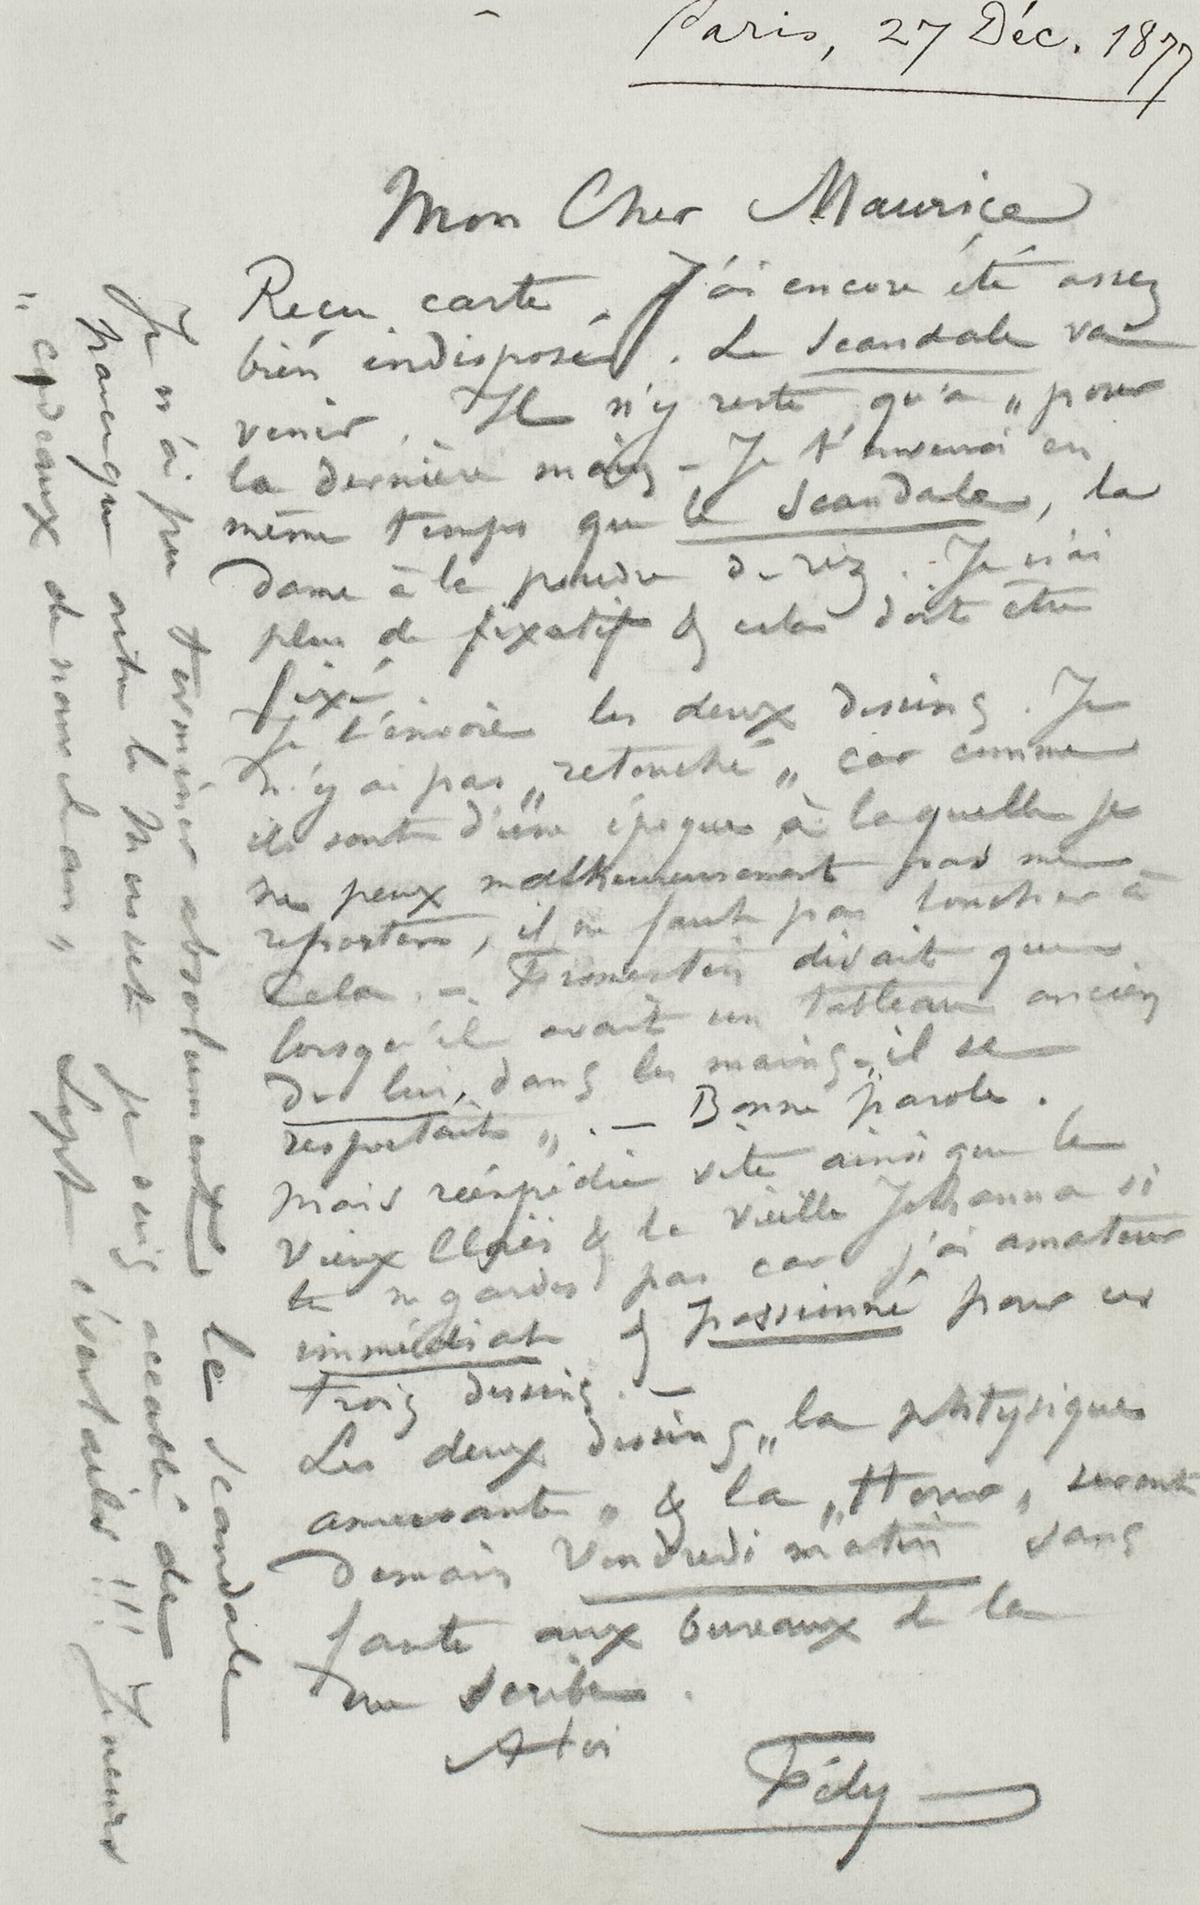 Paris, 27 Déc. 1877
Mon Cher Maurice
Reçu carte. J'ai encore été assez
bien indisposé. Le Scandale va
venir. Il n'y reste qu'à „ poser
la dernière main – Je t'enverrai en
même temps que le Scandale, la
dame à la poudre de riz. Je n'ai
plus de fixatif & cela doit être
fixé.
Je t'envoie les deux dessins. Je
n'y ai pas „ retouché „ car comme
ils sont d'une époque à laquelle je
ne peux malheureusement pas me
reporter, il ne faut pas toucher à
cela. – Fromentin disait que
lorsqu'il avait un tableau ancien
de lui, dans les mains, „ il se
respectait „. — Bonne parole.
Mais réexpédie vite ainsi que le
vieux & la vieille Johanna si
tu ne gardes pas car j'ai amateur
immédiat & passionné pour ces
trois dessins. —
Les deux dessins „ la phtysique
amusante „ & la „ „ seront
demain Vendredi matin sans
faute aux bureaux de la
rue Scribe.
A toi
Fély
Je n'ai pu terminer absolument le Scandale
parce que je suis accablé de
" cadeaux de nouvel an „ Sept éventails !!!